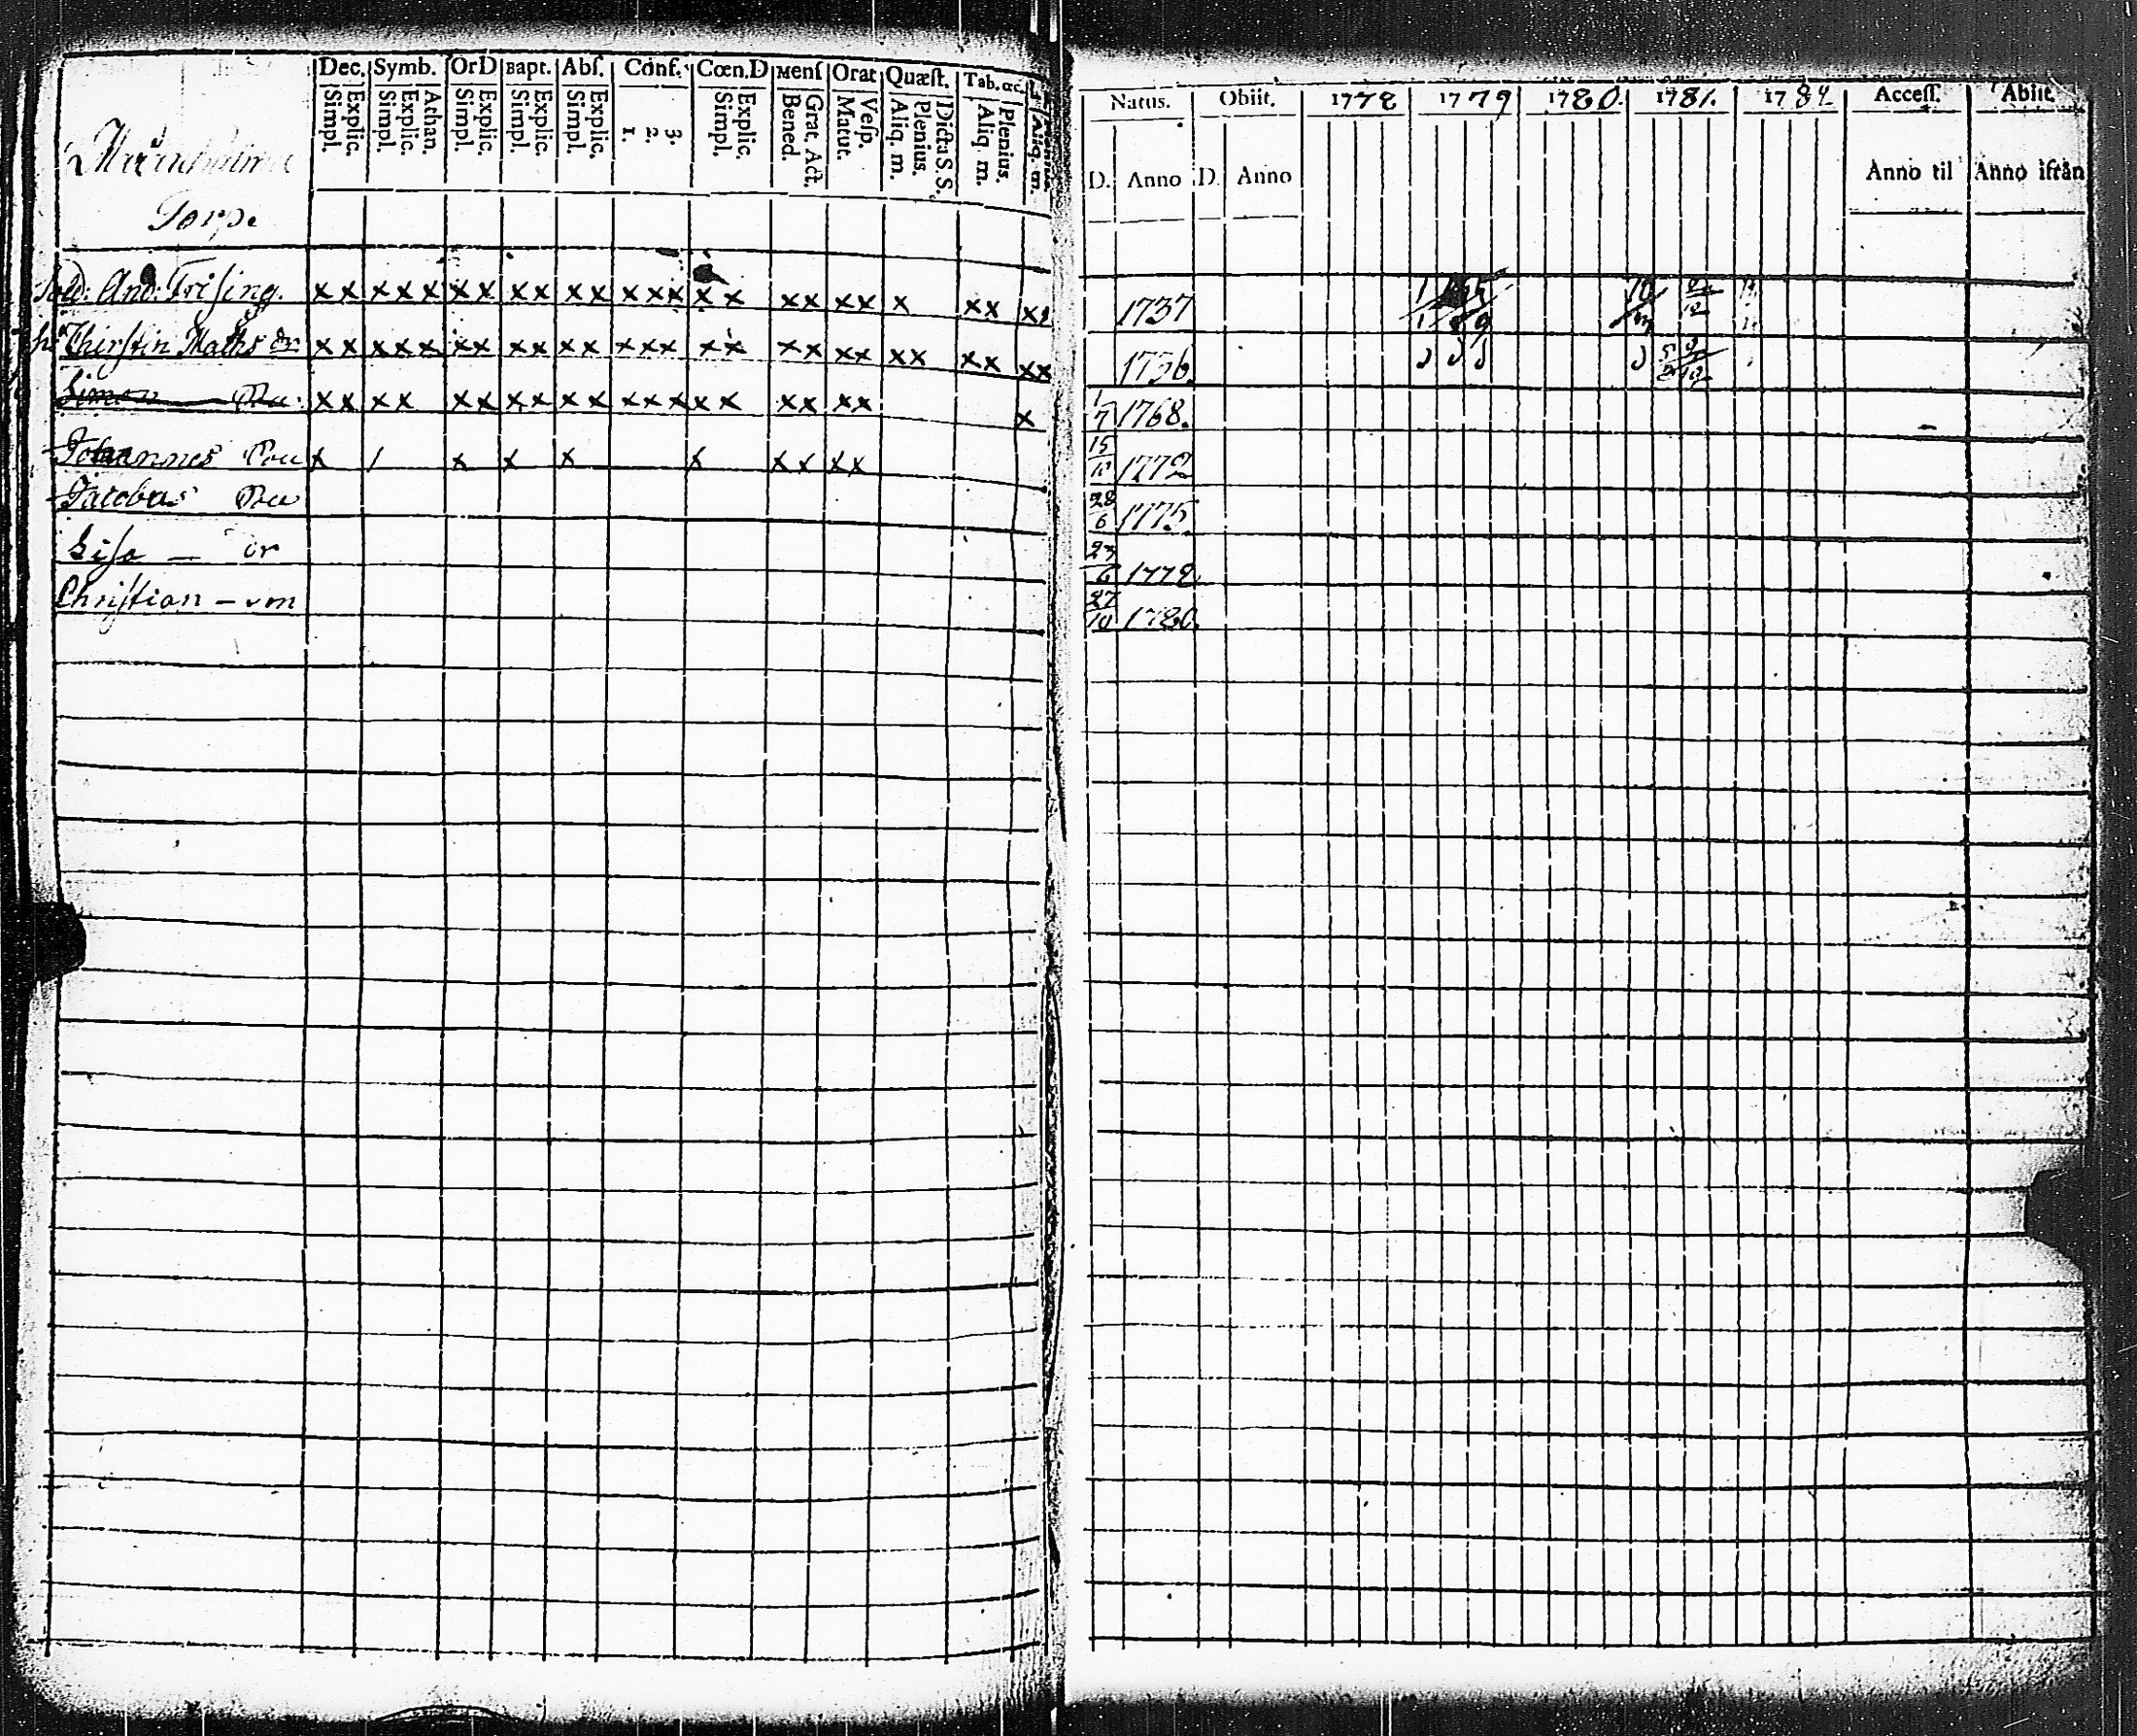 Dec. Symb. OrD Bapt. Abſ. Conf. Cœn.D Menſ Orat Quæſt. Tab. œc.
Simpl. Explic. Simpl. Explic. Athan. Simpl. Explic. Simpl. Explic. Simpl. Explic. 1. 2. 3. Simpl. Explic. Bened. Grat. Act. Matut. Veſp. Aliq. m. Plenius. Dicta S. S. Aliq. m. Plenius. Aliq. m.
Torp.
Sold: And: Friſing. x x x x x x x x x x x x x x x x x x x x x x x x
Chirſtin Maths dr x x x x x x x x x x x x x x x x x x x x x x x x x x
Simon x x x x x x x x x x x x x x x x x x x x x
Johannes x / x x x x x x x x
Jacobus
Liſa — dr
Chriſtian —
Natus. Obiit. 1778 1779 1780. 1781. 1782 Acceſſ. Abiit.
D. Anno D. Anno Anno til Anno ifrån
1737
1736.
1/7 1768.
15 1772
28/6 1775
23/6 1778
27/10 1780.